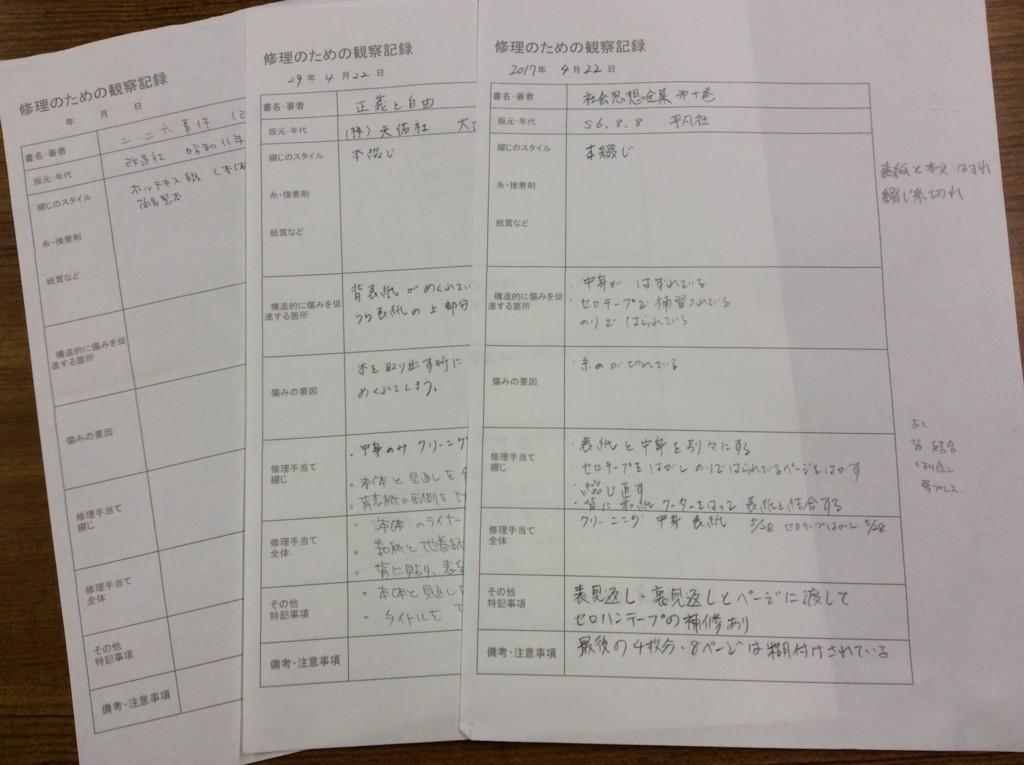 修理のための観察記録
年 月 日
書名・著者 二・二六事件
版元・年代 改造社 昭和11年
綴じのスタイル ホッチキス綴
糸・接着剤
紙質など
構造的に傷みを促
進する箇所
傷みの要因
修理手当て
綴じ
修理手当て
全体
その他
特記事項
備考・注意事項
修理のための観察記録
29年 4月22日
書名・著者 正義と自由
版元・年代 (株)天佑社 大正
綴じのスタイル 本綴じ
糸・接着剤
紙質など
構造的に傷みを促
進する箇所
背表紙がめくれてい
うら表紙の上部分
傷みの要因
本を取り出す時に
めくれてしまう。
修理手当て
綴じ
・中身のみ クリーニング
・本体と見返しを
・背表紙の
修理手当て
全体
・本体のライナー
・和紙と地巻紙
・背に貼り、表
その他
特記事項
・本体と見返し
・タイトルを
備考・注意事項
修理のための観察記録
2017年 4月22日
書名・著者 社会思想全集 第十巻
版元・年代 S6.8.8 平凡社
綴じのスタイル 本綴じ
糸・接着剤
紙質など
構造的に傷みを促
進する箇所
・中身が はずれている
・セロテープで補習されている
・のりで はられている
傷みの要因 ・糸のが切れている
修理手当て
綴じ
・表紙と中身を別々にする
・セロテープをはがしのりではられているページをはがす
・綴じ直す
・背に和紙クータをはって表紙と結合する
修理手当て
全体
クリーニング 中身 表紙 5/28 セロテープはがし 5/28
その他
特記事項
表見返し・裏見返しとページに渡して
セロハンテープの補修あり
備考・注意事項 最後の4枚分・8ページは糊付けされている
表紙と本文 はずれ
綴じ糸切れ